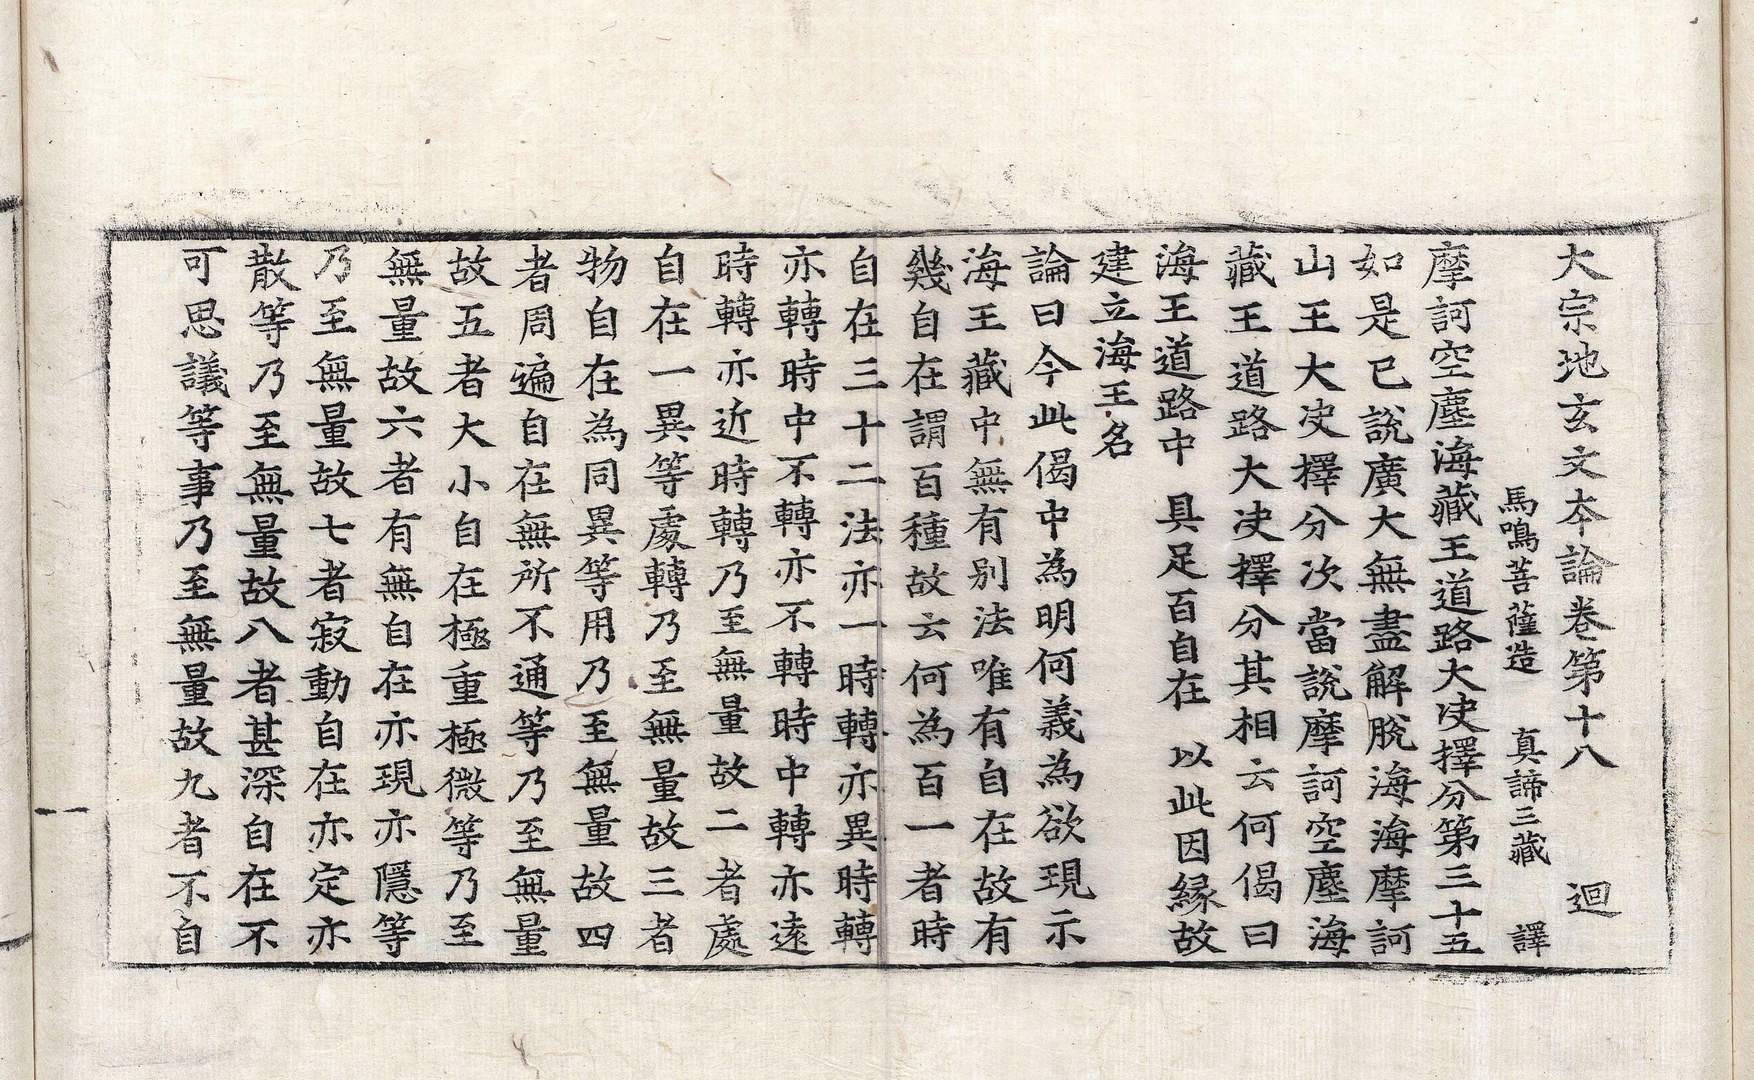 大宗地玄文夲論卷第十八　迴
馬鳴菩薩造　真諦三藏　譯
摩訶空塵海藏王道路大决擇分第三十五
如是已說廣大無盡解脫海海摩訶
山王大决擇分次當說摩訶空塵海
藏王道路大决擇分其相云何偈曰
海王道路中　具足百自在　以此因縁故
建立海王名
論曰今此偈中為明何義為欲現示
海王藏中無有别法唯有自在故有
幾自在謂百種故云何為百一者時
自在三十二法亦一時轉亦異時轉
亦轉時中不轉亦不轉時中轉亦遠
時轉亦近時轉乃至無量故二者處
自在一異等處轉乃至無量故三者
物自在為同異等用乃至無量故四
者周遍自在無所不通等乃至無量
故五者大小自在極重極微等乃至
無量故六者有無自在亦現亦隱等
乃至無量故七者寂動自在亦定亦
散等乃至無量故八者甚深自在不
可思議等事乃至無量故九者不自